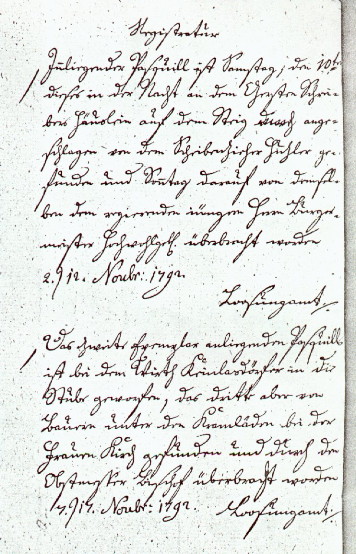 Registratur
Inliegender Pasquill ist Samstag, den 10t
dieses in der Nacht an dem Schrei-
bers Häuslein auf dem Steig ange-
schlagen von dem Scheibenzieher Hühler ge-
funden und Sontag darauf von demsel-
ben dem regierenden jüngern Herrn Burger-
meister Hochwohlgeb. überbracht worden
2./ 12. Novbr: 1792.
Losungamt.
Das zweite Exemplar anliegenden Pasquills
ist bei dem Wirth in die
Stube geworfen, das dritte aber von
Bauern unter den Kramläden bei der
Frauen Kirch gefunden und durch den
Obstmesser Bischof überbracht worden
17. Novbr: 1792. Losungamt.